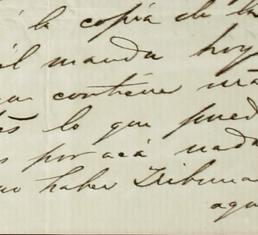 á la copia de la
il manda hoy
contiene
lo que pued
por acá nada
no haber Tribuna
aqu